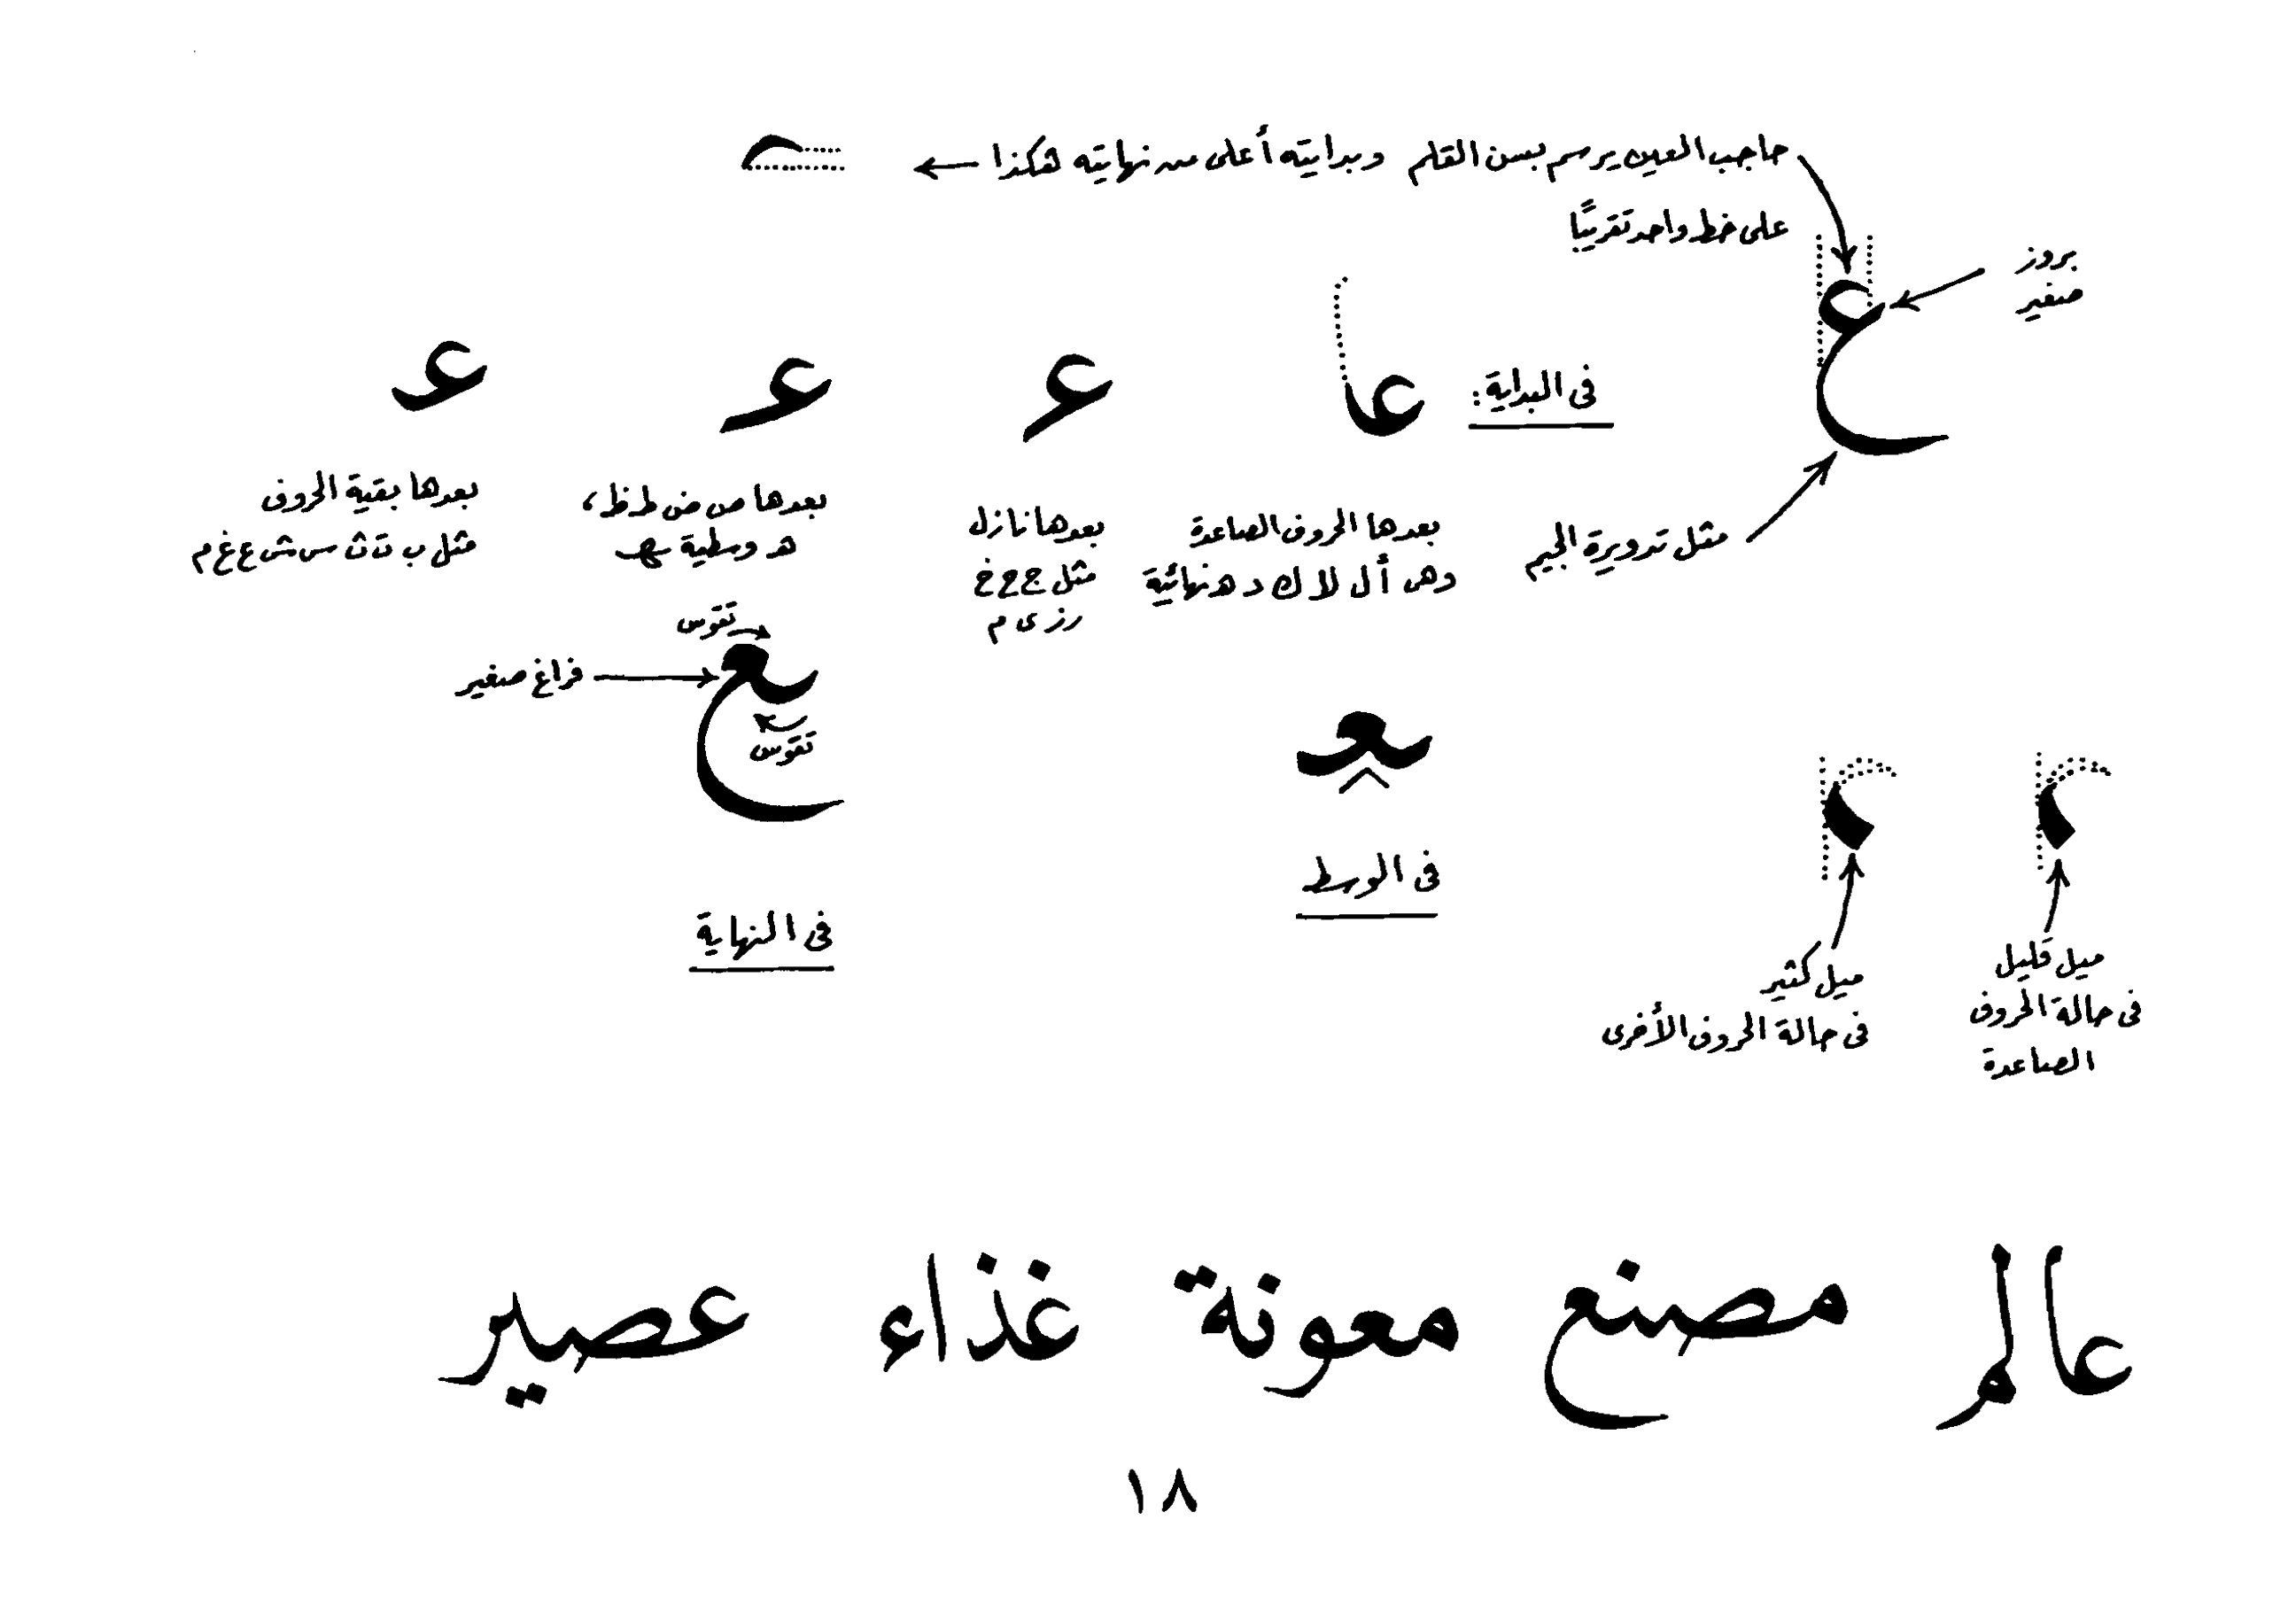 حاجب العين يرسم بسن القلم وبدايته أعلى من نهايته هكذا
على خط واحد تقريبًا
بروز
صغير
ع
فى البداية:
عا
ع
عـ
عـ
مثل تدويرة الجيم
بعدها الحروف الصاعدة
وهى أ ل لا ك د ه نهائية
بعدها نازل
مثل ج ح خ
ر ز ى م
بعدها ص ض ط ظ،
هـ وسطية ـهـ
بعدها بقية الحروف
مثل ب ت ث س ش ع غ م
تقوس
فراغ صغير
ـع
تقوس
ـعـ
فى الوسط
فى النهاية
ميل قليل
فى حالة الحروف
الصاعدة
ميل كثير
فى حالة الحروف الأخرى
عالم مصنع معونة غذاء عصير
١٨